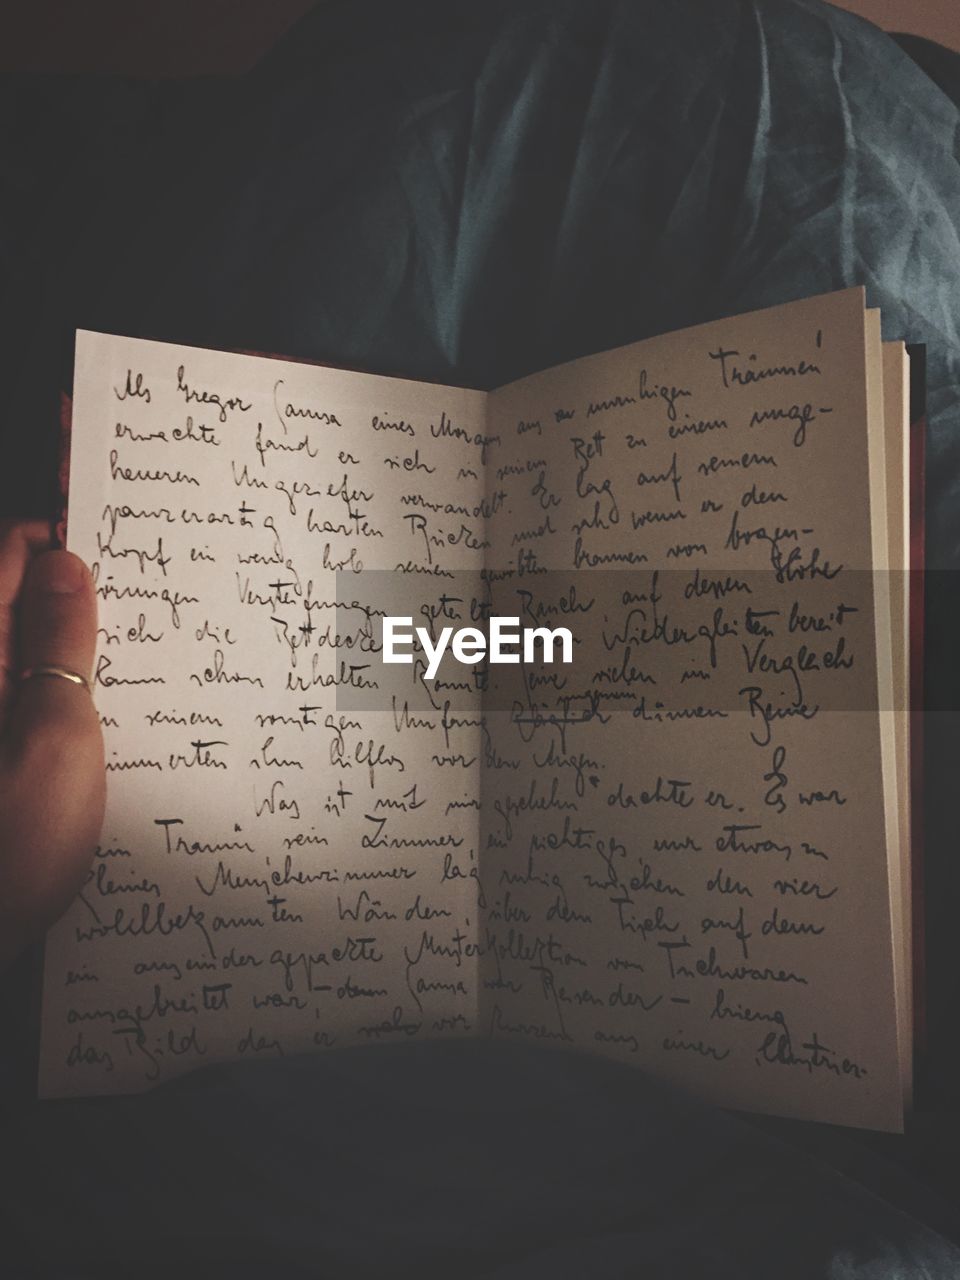 Als Gregor Samsa eines Morgens aus unruhigen Träumen
erwachte fand er sich in seinem Bett zu einem unge-
heueren Ungeziefer verwandelt. Er lag auf seinem
panzerartig harten Rücken und sah wenn er den
Kopf ein wenig hob seinen gewölbten braunen von bogen-
förmigen Versteifungen geteilten Bauch auf dessen Höhe
sich die Bettdecke zum Niedergleiten bereit
kaum schon erhalten konnte. Seine vielen im Vergleich
zu seinem sonstigen Umfang kläglich dünnen Beine
flimmerten ihm hilflos vor den Augen.
Was ist mit mir geschehn" dachte er. Es war
kein Traum sein Zimmer, ein richtiges nur etwas zu
kleines Menschenzimmer lag ruhig zwischen den vier
wohlbekannten Wänden, über dem Tisch, auf dem
ein auseindergepackte Musterkollektion von Tuchwaren
ausgebreitet war – Samsa war Reisender – hieng
das Bild das er vor kurzem aus einer illustrier-
EyeEm